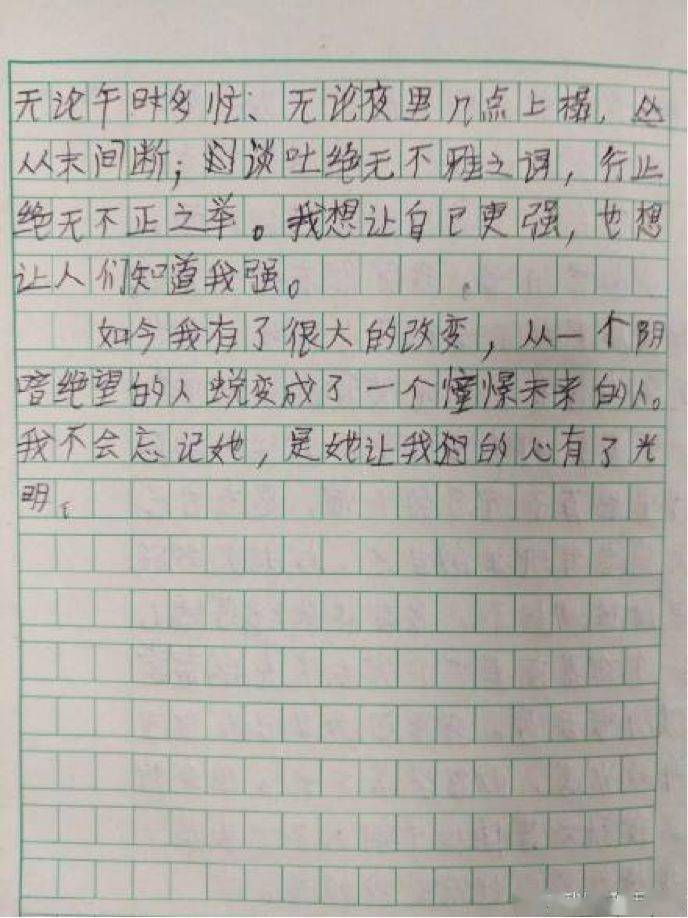 无论午时多忙、无论夜里几点上榻,
从未间断;谈吐绝无不雅之词,行止
绝无不正之举。我想让自己更强,也想
让人们知道我强。
如今我有了很大的改变,从一个阴
暗绝望的人蜕变成了一个憧憬未来的人。
我不会忘记她,是她让我的心有了光
明。